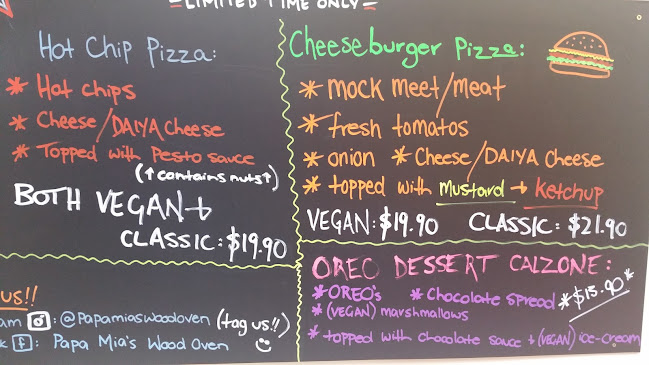 LIMITED TIME ONLY
Hot Chip Pizza:
* Hot chips
* Cheese/DAIYA cheese
* Topped with Pesto sauce
(↑contains nuts↑)
BOTH VEGAN +
CLASSIC: $19.90
Cheeseburger Pizza:
* mock meet/meat
* fresh tomatos
* onion * Cheese/DAIYA Cheese
* topped with mustard + ketchup
VEGAN: $19.90 CLASSIC: $21.90
us!!
am : @Papamiaswoodoven (tag us!!)
k f: Papa Mia's Wood Oven
OREO DESSERT CALZONE:
* OREO's * Chocolate spread *$15.90*
* (VEGAN) marshmallows
* topped with chocolate sauce + (VEGAN) ice-cream